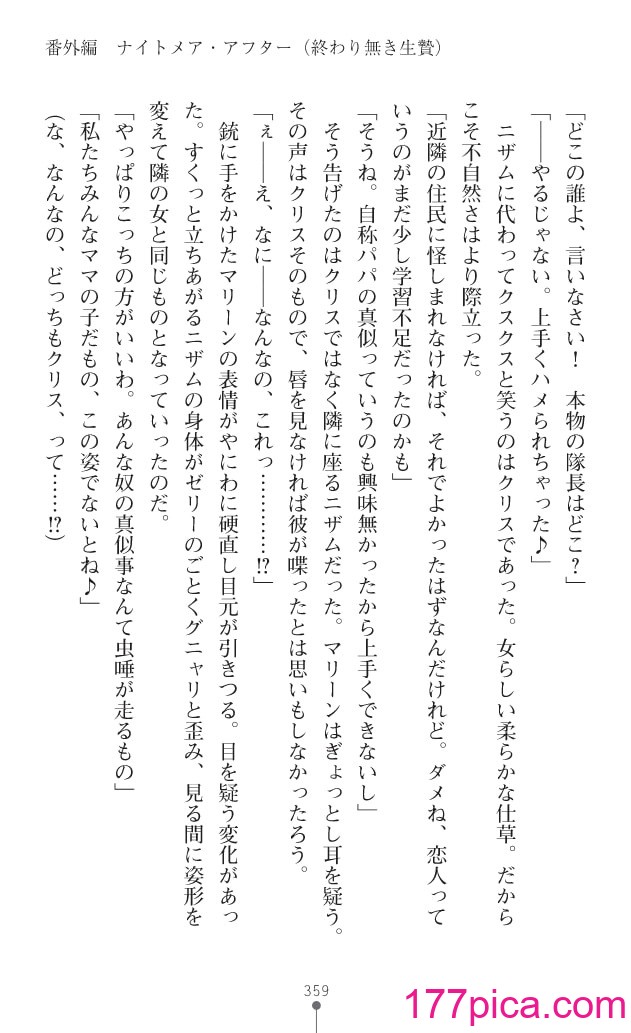 番外編　ナイトメア・アフター（終わり無き生贄）
「どこの誰よ、言いなさい！　本物の隊長はどこ？」
「――やるじゃない。上手くハメられちゃった♪」
　ニザムに代わってクスクスと笑うのはクリスであった。女らしい柔らかな仕草。だから
こそ不自然さはより際立った。
「近隣の住民に怪しまれなければ、それでよかったはずなんだけれど。ダメね、恋人って
いうのがまだ少し学習不足だったのかも」
「そうね。自称パパの真似っていうのも興味無かったから上手くできないし」
　そう告げたのはクリスではなく隣に座るニザムだった。マリーンはぎょっとし耳を疑う。
その声はクリスそのもので、唇を見なければ彼が喋ったとは思いもしなかったろう。
「ぇ――え、なに――なんなの、これっ…………⁉」
　銃に手をかけたマリーンの表情がやにわに硬直し目元が引きつる。目を疑う変化があっ
た。すくっと立ちあがるニザムの身体がゼリーのごとくグニャリと歪み、見る間に姿形を
変えて隣の女と同じものとなっていったのだ。
「やっぱりこっちの方がいいわ。あんな奴の真似事なんて虫唾が走るもの」
「私たちみんなママの子だもの、この姿でないとね♪」
（な、なんなの、どっちもクリス、って……⁉）
359
177pica.com